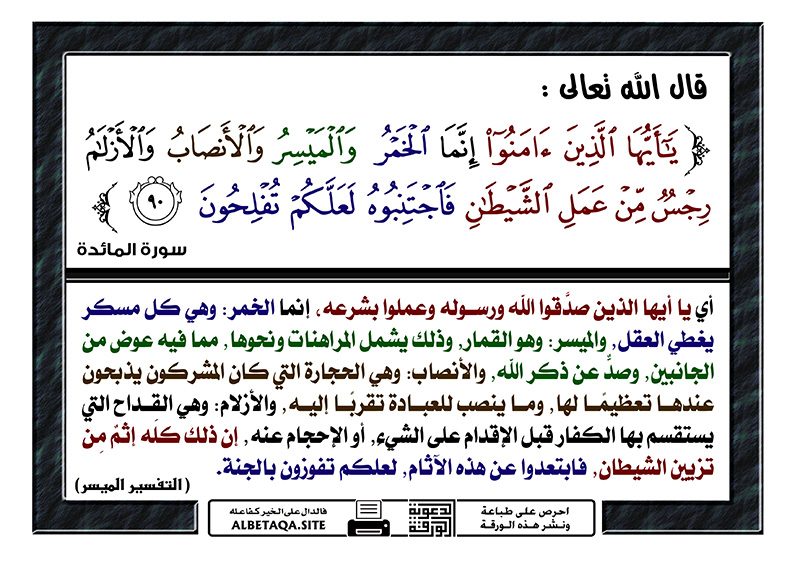 قال الله تعالى :
يَٰٓأَيُّهَا ٱلَّذِينَ ءَامَنُوٓا۟ إِنَّمَا ٱلْخَمْرُ وَٱلْمَيْسِرُ وَٱلْأَنصَابُ وَٱلْأَزْلَٰمُ
رِجْسٌ مِّنْ عَمَلِ ٱلشَّيْطَٰنِ فَٱجْتَنِبُوهُ لَعَلَّكُمْ تُفْلِحُونَ ٩٠
سورة المائدة
أي يا أيها الذين صدَّقوا الله ورسوله وعملوا بشرعه، إنما الخمر: وهي كل مسكر
يغطي العقل, والميسر: وهو القمار, وذلك يشمل المراهنات ونحوها, مما فيه عوض من
الجانبين, وصدٌّ عن ذكر الله, والأنصاب: وهي الحجارة التي كان المشركون يذبحون
عندها تعظيمًا لها, وما ينصب للعبادة تقربًا إليه, والأزلام: وهي القداح التي
يستقسم بها الكفار قبل الإقدام على الشيء, أو الإحجام عنه, إن ذلك كلَّه إثمٌ مِن
تزيين الشيطان, فابتعدوا عن هذه الآثام, لعلكم تفوزون بالجنة.
(التفسير الميسر)
فالدال على الخير كفاعله
ALBETAQA.SITE
الدعوية
الورقة
احرص على طباعة
ونشر هذه الورقة